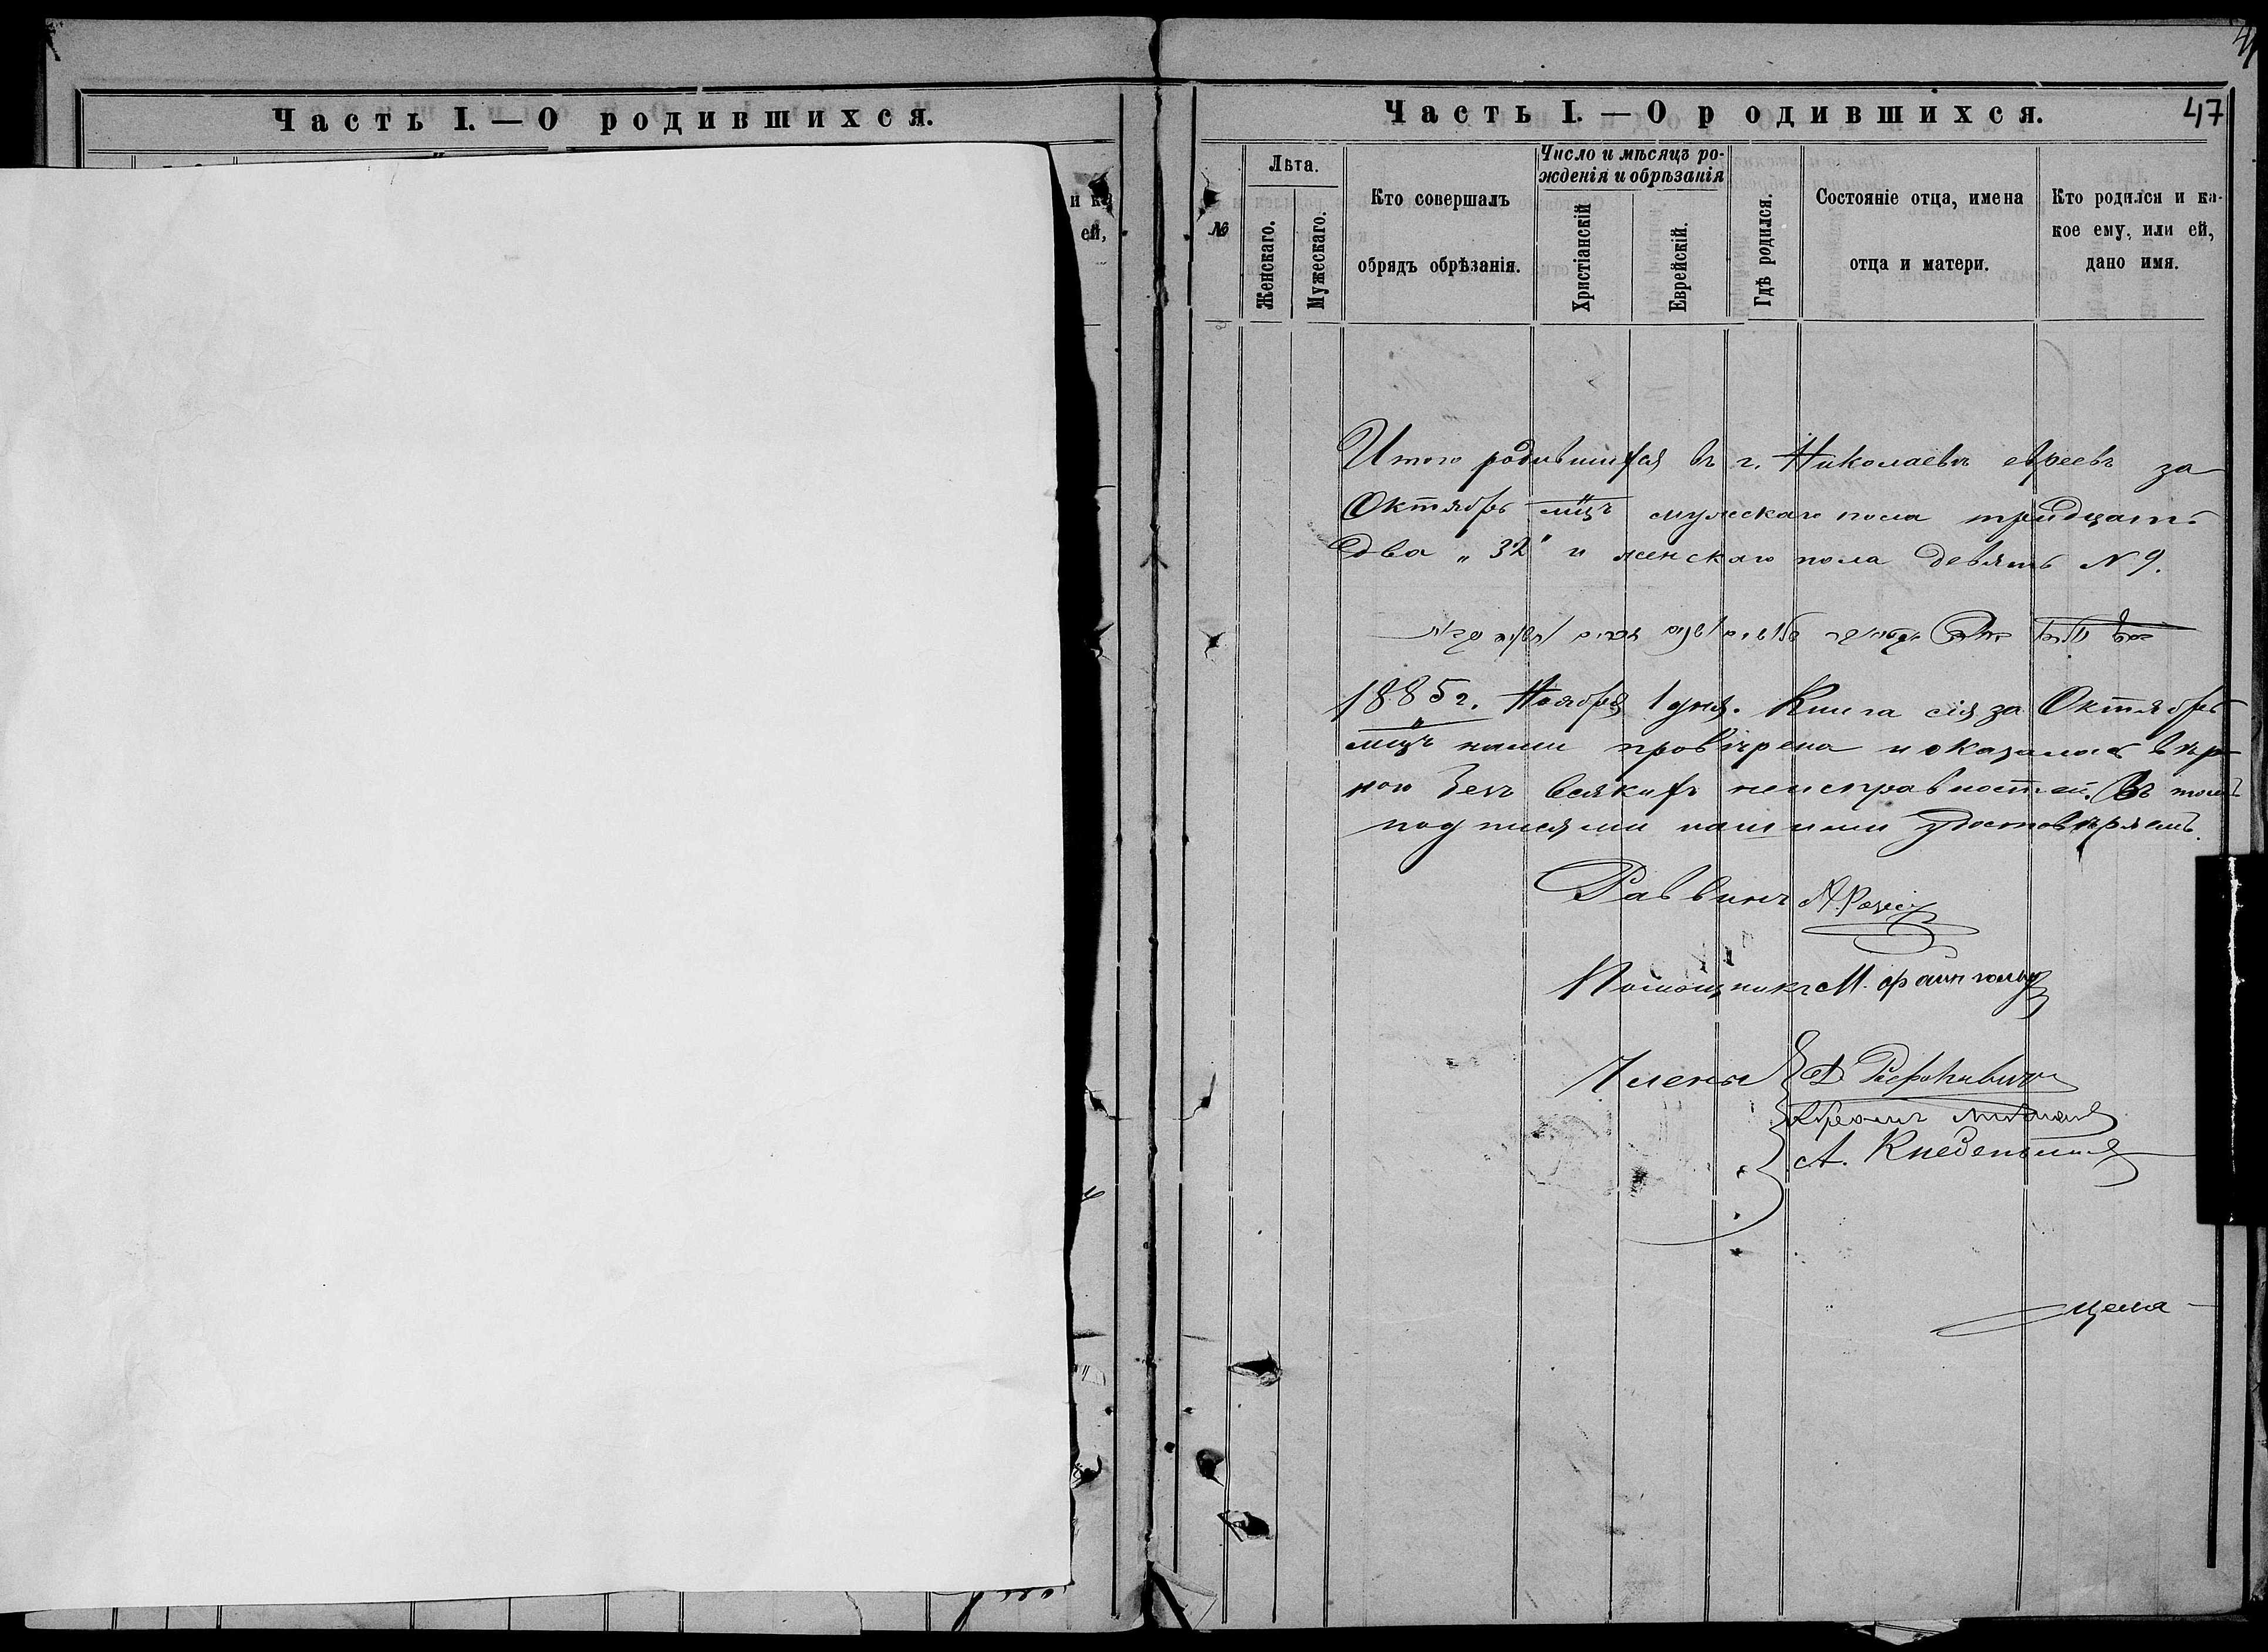 Часть I. — О родившихся.
и ка
ей,
47
Часть I. — О родившихся.
№
Лѣта.
Женскаго.
Мужескаго.
Кто совершалъ
обрядъ обрѣзанія.
Число и мѣсяцъ ро-
жденія и обрѣзанія
Христіанскій
Еврейскій.
Гдѣ родился.
Состояніе отца, имена
отца и матери.
Кто родился и ка-
кое ему, или ей,
дано имя.
Итого родившихся въ г. Николаевѣ евреевъ за
Октябрь мцъ мужскаго пола тридцать
два „32" и женскаго пола девять № 9.
1885 г. Ноября 1 дня. Книга сія за Октябрь
мцъ нами провѣрена и оказалась вѣр-
ною безъ всякихъ неисправностей. Въ томъ
подписями нашими удостовѣряемъ.
Раввинъ
Помощникъ М.
Члены
А.